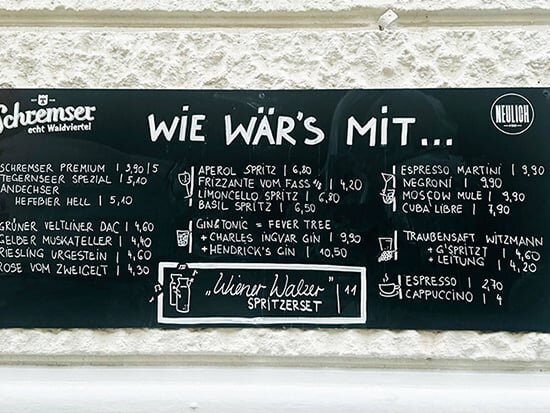 Schremser
echt Waldviertel
WIE WÄR'S MIT...
NEULICH
SCHREMSER PREMIUM | 3,90 | 5
TEGERNSEER SPEZIAL | 5,10
ANDECHSER
HEFEBIER HELL | 5,10
GRÜNER VELTLINER DAC | 4,60
GELBER MUSKATELLER | 4,40
RIESLING URGESTEIN | 4,60
ROSE VOM ZWEIGELT | 4,30
APEROL SPRITZ | 6,80
FRIZZANTE VOM FASS 1/8 | 4,20
LIMONCELLO SPRITZ | 6,80
BASIL SPRITZ | 6,50
GIN&TONIC = FEVER TREE
+ CHARLES INGVAR GIN | 9,90
+ HENDRICK'S GIN | 10,50
„Wiener Walzer" | 11
SPRITZERSET
ESPRESSO MARTINI | 9,90
NEGRONI | 9,90
MOSCOW MULE | 9,90
CUBA LIBRE | 7,90
TRAUBENSAFT WITZMANN
+ G'SPRITZT | 4,60
+ LEITUNG | 4,20
ESPRESSO | 2,70
CAPPUCCINO | 4